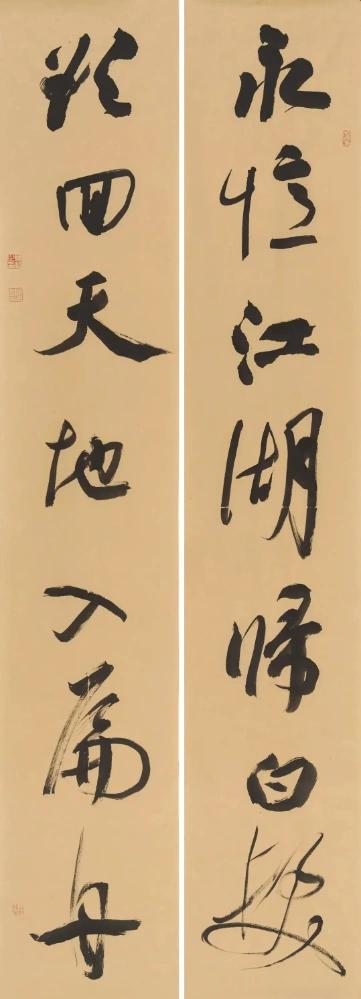 永忆江湖歸白髮
欲回天地入扁舟